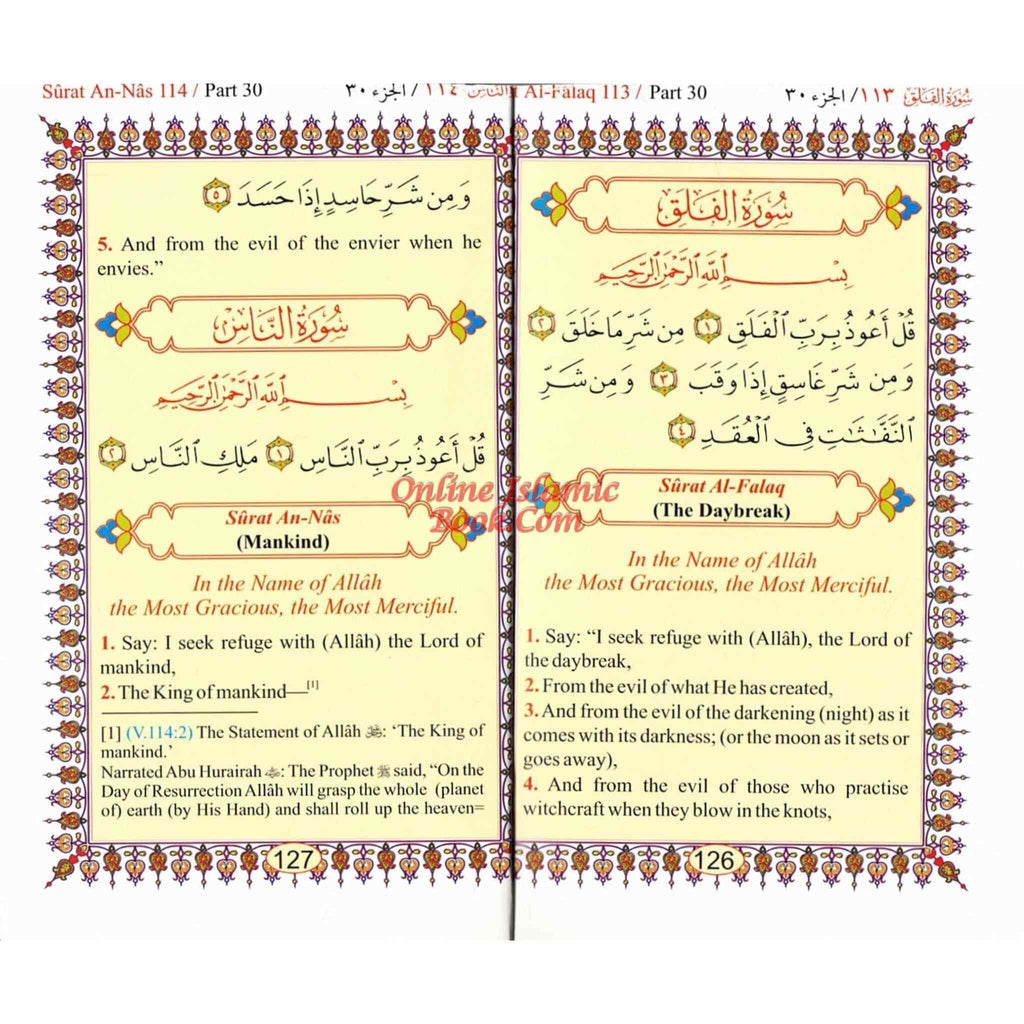 سورة الفلق ١١٣/ الجزء ٣٠
Al-Fâlaq 113 / Part 30
سُورَةُ الفَلَقِ
بِسْمِ ٱللَّهِ ٱلرَّحْمَٰنِ ٱلرَّحِيمِ
قُلْ أَعُوذُ بِرَبِّ ٱلْفَلَقِ ١ مِن شَرِّ مَا خَلَقَ ٢
وَمِن شَرِّ غَاسِقٍ إِذَا وَقَبَ ٣ وَمِن شَرِّ
ٱلنَّفَّـٰثَـٰتِ فِى ٱلْعُقَدِ ٤
Sûrat Al-Falaq
(The Daybreak)
In the Name of Allâh
the Most Gracious, the Most Merciful.
1. Say: “I seek refuge with (Allâh), the Lord of
the daybreak,
2. From the evil of what He has created,
3. And from the evil of the darkening (night) as it
comes with its darkness; (or the moon as it sets or
goes away),
4. And from the evil of those who practise
witchcraft when they blow in the knots,
126
Sûrat An-Nâs 114 / Part 30
الناس ١١٤ / الجزء ٣٠
وَمِن شَرِّ حَاسِدٍ إِذَا حَسَدَ ٥
5. And from the evil of the envier when he
envies.”
سُورَةُ النَّاسِ
بِسْمِ ٱللَّهِ ٱلرَّحْمَٰنِ ٱلرَّحِيمِ
قُلْ أَعُوذُ بِرَبِّ ٱلنَّاسِ ١ مَلِكِ ٱلنَّاسِ ٢
Sûrat An-Nâs
(Mankind)
In the Name of Allâh
the Most Gracious, the Most Merciful.
1. Say: I seek refuge with (Allâh) the Lord of
mankind,
2. The King of mankind—[1]
[1] (V.114:2) The Statement of Allâh ﷻ: ‘The King of
mankind.’
Narrated Abu Hurairah: The Prophet ﷺ said, “On the
Day of Resurrection Allâh will grasp the whole (planet
of) earth (by His Hand) and shall roll up the heaven=
127
Online Islamic
Book.Com